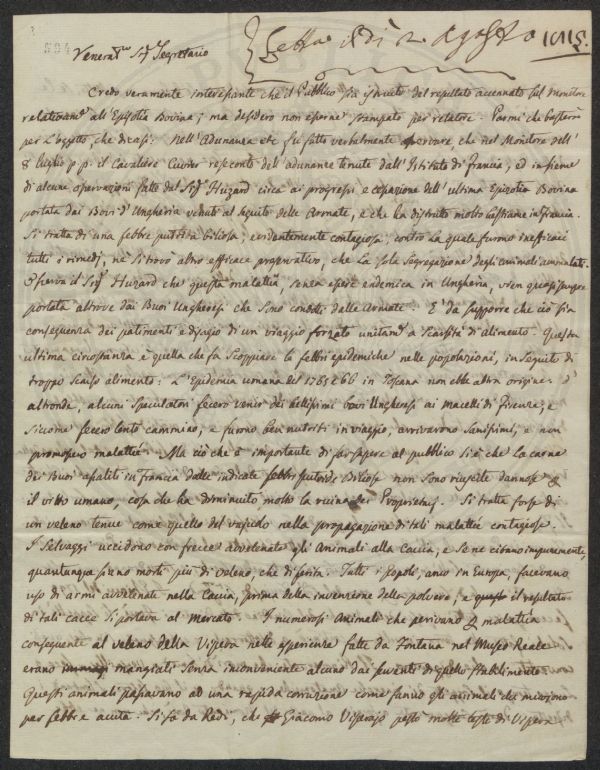 594
Venerat.mo Sig.r Segretario
Letta il dì 2. Agosto 1815.
Credo veramente interessante che il Pubblico sia istruito del resultato accennato sul Monitore
relativam.e all'Epizotia Bovina; ma desidero non esporne stampato per relatore. Parmi che basterà
per l'oggetto, che dicasi: Nell'Adunanza etc. fu fatto verbalmente osservare, che nel Monitore dell'
8 Luglio p.p. il Cavaliere Cuvier rese conto dell'adunanze tenute dall'Istituto di Francia, ed insieme
di alcune osservazioni fatte dal Sig.r Huzard circa ai progressi e cessazione dell'ultima Epizotia Bovina
portata dai Bovi d'Ungheria venuti al seguito delle Armate, e che ha distrutto molto bestiame in Francia.
Si tratta di una febbre putrida biliosa, evidentemente contagiosa, contro la quale furono inefficaci
tutti i rimedj, ne si trovò altro efficace preservativo, che la sola segregazione degli animali ammalati.
Osserva il Sig.r Huzard che questa malattia, senza essere endemica in Ungheria, vien quasi sempre
portata altrove dai Buoi Ungheresi che sono condotti dalle Armate. È da supporre che ciò sia
conseguenza dei patimenti e disagio di un viaggio forzato unitam.e a scarsità di alimento. Questa
ultima circostanza è quella che fa scoppiare le febbri epidemiche nelle popolazioni, in seguito di
troppo scarso alimento: L'Epidemia umana del 1765 e 66 in Toscana non ebbe altra origine. D'
altronde, alcuni speculatori fecero venire dei bellissimi bovi Ungheresi ai macelli di Firenze, e
siccome fecero lento cammino, e furono ben nutriti in viaggio, arrivarono sanissimi, e non
promossero malattie. Ma ciò che è importante di far sapere al pubblico si è che la carne
dei Buoi assaliti in Francia dalle indicate febbri putride Biliose non sono riuscite dannose p
il vitto umano, cosa che ha diminuito molto la ruina dei Proprietarj. Si tratta forse di
un veleno tenue come quello del vajuolo nella propagazione di tali malattie contagiose.
I Selvaggi uccidono con frecce avvelenate gli Animali alla Caccia, e se ne cibano impunemente,
quantunque sieno morti più di veleno, che di ferita. Tutti i popoli, anco in Europa, facevano
uso di armi avvelenate nella Caccia, prima della invenzione della polvere, e il resultato
di tali cacce si portava al mercato. I numerosi Animali che perivano p malattia
conseguente al veleno della Vipera nelle esperienze fatte da Fontana nel Museo Reale
erano mangiati senza inconveniente alcuno dai serventi di quello stabilimento.
Questi animali passavano ad una rapida corruzione come fanno gli animali che muoiono
per febbre acuta. Si sa da Redi, che Giacomo Viperajo pestò molte teste di Vipera